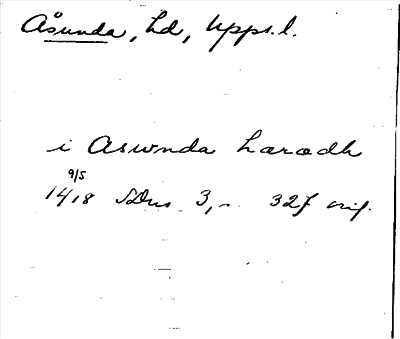 Åsunda, hd, Upps. l.
i Aswnda haradh
9/5
1418 SDns 3, 327 orig.